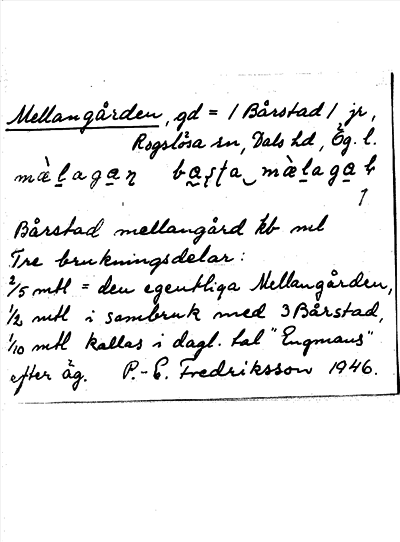 Mellangården, gd = /Bårstad/ jr,
Rogslösa sn, Dals hd, Ög. l.
Bårstad mellangård kb ml
Tre brukningsdelar:
2/5 mtl = den egentliga Mellangården,
1/2 mtl i sambruk med 3 Bårstad,
1/10 mtl kallas i dagl. tal "Engmans"
efter äg. P.-E. Fredriksson 1946.